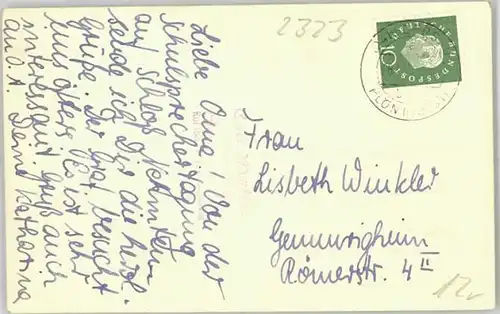 Liebe Oma! Von der
schulsprechertagung
auf Schloß Nehmten
sende ich Dir die herzl.
Grüße. Der Graf besucht
uns öfters. Es ist sehr
interessant. Gruß auch
an O.A. Deine Katharina
2323
DEUTSCHE BUNDESPOST
10
PLÖN
Frau
Lisbeth Winkler
Gemmrigheim
Römerstr. 4 II